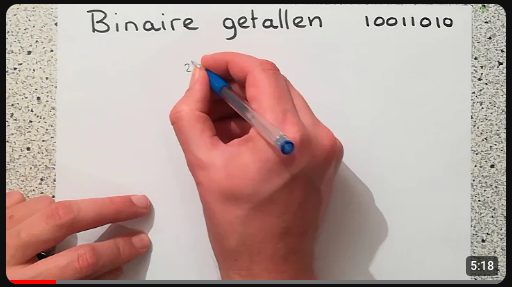 Binaire getallen 10011010
2
5:18